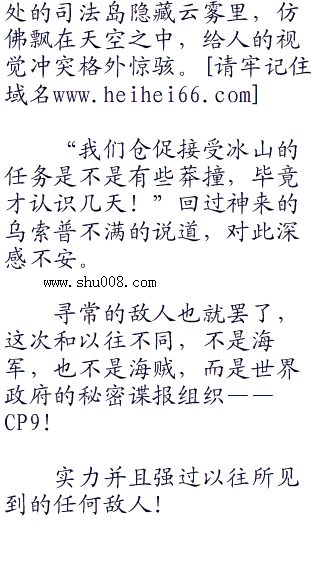 处的司法岛隐藏云雾里，仿
佛飘在天空之中，给人的视
觉冲突格外惊骇。[请牢记住
域名www.heihei66.com]
“我们仓促接受冰山的
任务是不是有些莽撞，毕竟
才认识几天！”回过神来的
乌索普不满的说道，对此深
感不安。
www.shu008.com
寻常的敌人也就罢了，
这次和以往不同，不是海
军，也不是海贼，而是世界
政府的秘密谍报组织——
CP9！
实力并且强过以往所见
到的任何敌人！